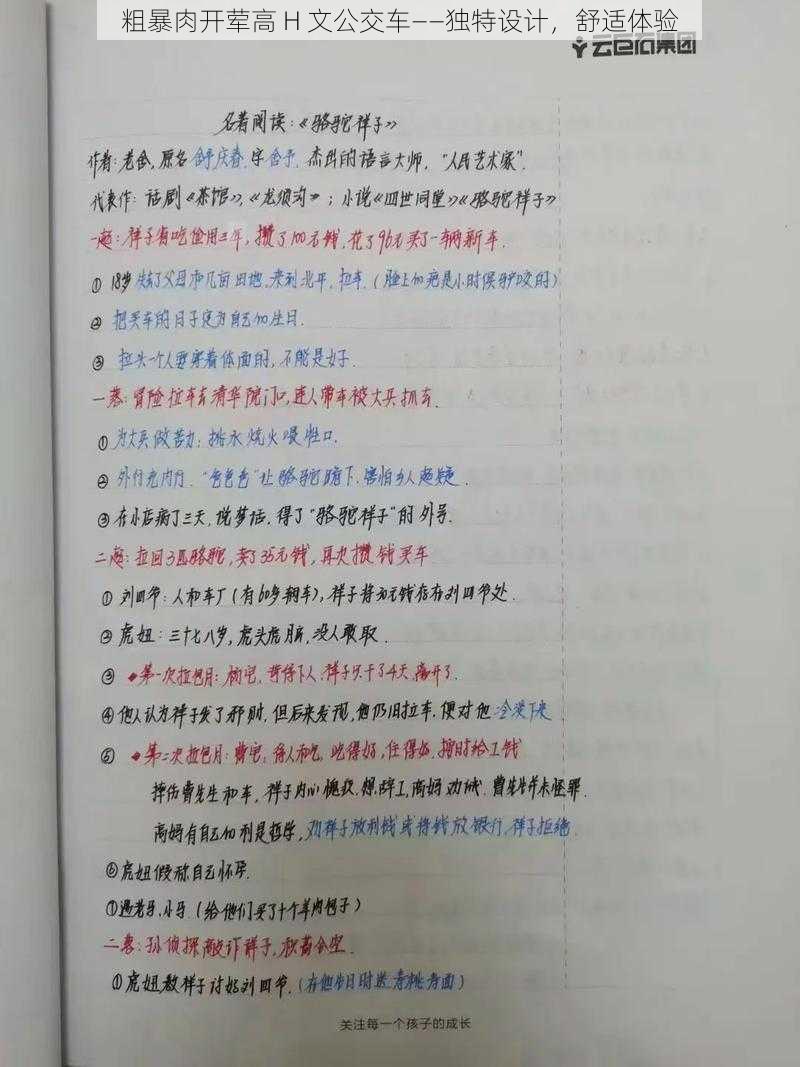 粗暴肉开荤高 H 文公交车——独特设计，舒适体验
云巨右集团
名著阅读：《骆驼祥子》
作者：老舍，原名舒庆春，字舍予，杰出的语言大师，“人民艺术家”.
代表作：话剧《茶馆》，《龙须沟》；小说《四世同堂》《骆驼祥子》
一起：祥子省吃俭用三年，攒了100元钱，花了96元买了一辆新车.
① 18岁失去了父母和几亩田地，来到北平，拉车.（脸上的疤是小时候驴咬的）
② 把买车的日子定为自己的生日.
③ 拉头一个人要穿着体面的，不能是女子.
一落：冒险拉车去清华院门口，连人带车被大兵抓去.
① 为大兵做苦力：挑水烧火喂牲口.
② 外行充内行，“色色色”让骆驼跪下，害怕乡人起疑.
③ 在小店病了三天，说梦话，得了“骆驼祥子”的外号.
二起：拉回3匹骆驼，卖了35元钱，再次攒钱买车
① 刘四爷：人和车厂（有60多辆车），祥子将30元钱存在刘四爷处.
② 虎妞：三十七八岁，虎头虎脑，没人敢取.
③ 第一次拉包月：杨宅，苛待下人，祥子只干了4天，离开了.
④ 他人认为祥子发了邪财，但后来发现，他仍旧拉车，便对他冷淡下来
⑤ 第二次拉包月：曹宅：待人和气，吃得好，住得好，按时给工钱
摔伤曹先生和车，祥子内心愧疚，想辞工，高妈劝诫，曹先生并未怪罪.
高妈有自己的利是哲学，劝祥子放利钱或将钱放银行，祥子拒绝.
⑥ 虎妞假称自己怀孕.
⑦ 遇老马，小马.（给他们买了十个羊肉包子）
二落：孙侦探敲诈祥子，积蓄全空.
① 虎妞教祥子讨好刘四爷.（在他生日时送寿桃寿面）
关注每一个孩子的成长